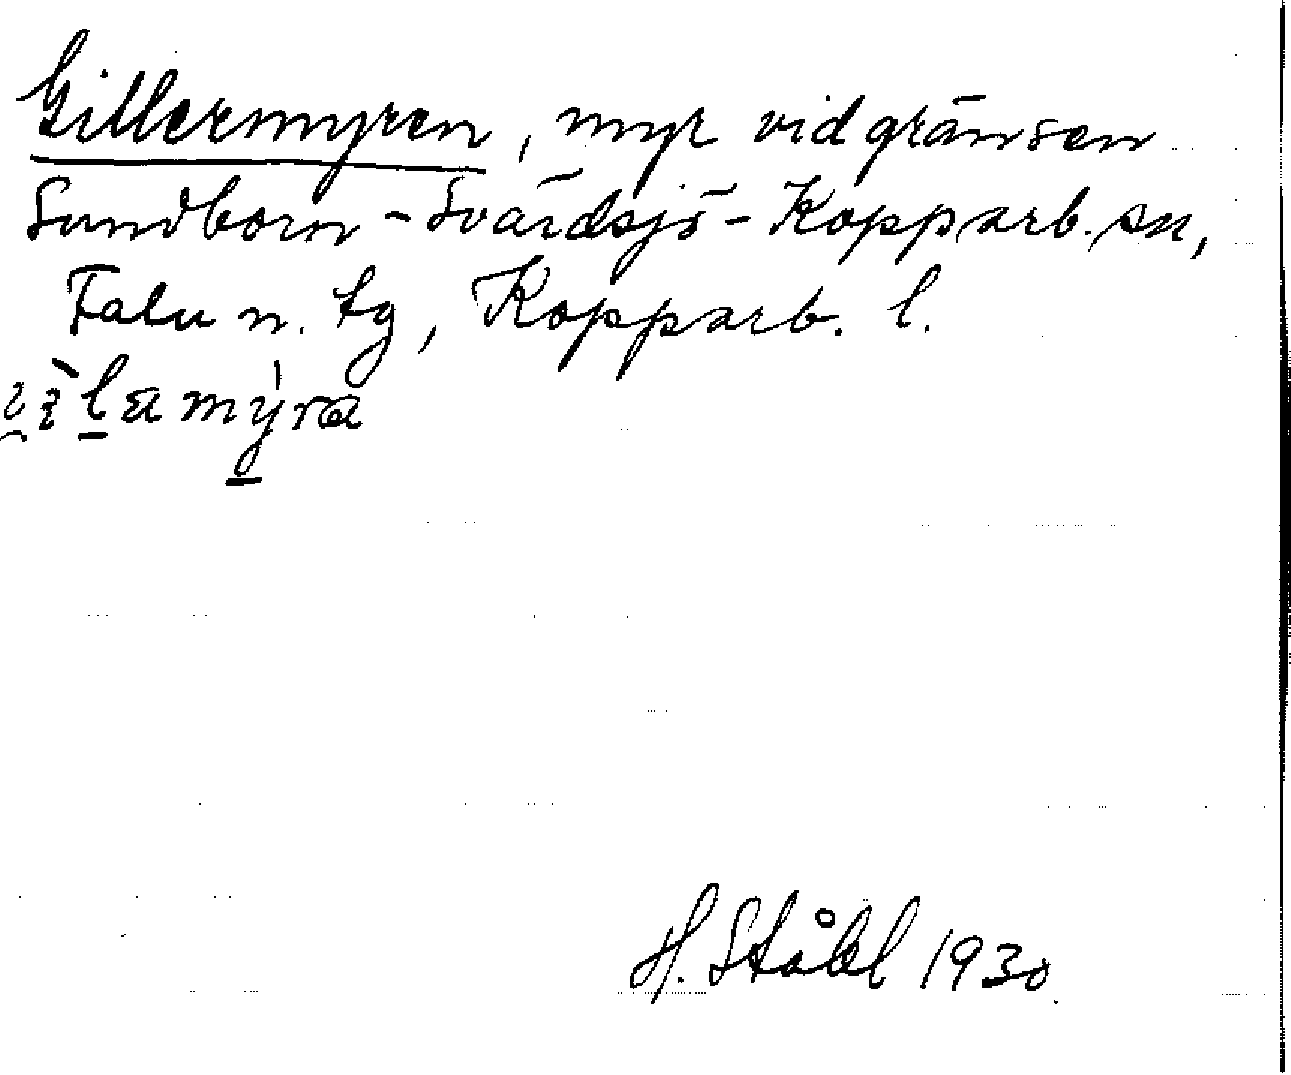 Gillermyren, myr vid gränsen
Sundborn-Svärdsjö-Kopparb. sn,
Falu n. tg, Kopparb. l.
H. Ståhl 1930